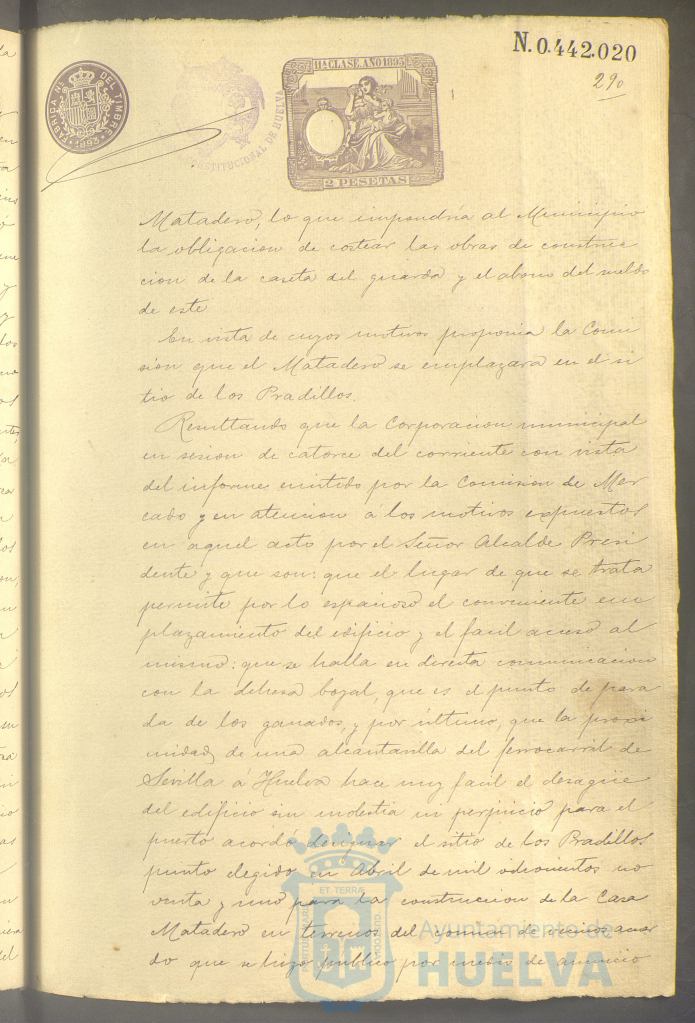 N.0.442.020
290
FABRICA N. DEL TIMBRE
1893
CONSTITUCIONAL DE HUELVA
11ª CLASE. AÑO 1893
2 PESETAS
Matadero, lo que impondría al Municipio
la obligacion de costear las obras de construc
cion de la caseta del guarda y el abono del sueldo
de este
En vista de cuyos motivos proponia la Comi
sion que el Matadero se emplazara en el si
tio de los Pradillos.
Resultando que la Corporacion municipal
en sesion de catorce del corriente con vista
del informe emitido por la Comision de Mer
cado y en atencion á los motivos expuestos
en aquel acto por el Señor Alcalde Presi
dente y que son: que el lugar de que se trata
permite por lo espacioso el conveniente em
plazamiento del edificio y el facil acceso al
mismo: que se halla en directa comunicacion
con la dehesa boyal, que es el punto de para
da de los ganados, y por último, que la proxi
midad de una alcantarilla del ferrocarril de
Sevilla á Huelva hace muy facil el desagüe
del edificio sin molestia ni perjuicio para el
puerto acordó designar el sitio de los Pradillos
punto elegido en Abril de mil ochocientos no
venta y uno para la construccion de la Casa
Matadero en terrenos del comun de vecinos acuer
do que se hizo publico por medio de anuncio
ET TERRÆ
Ayuntamiento de
HUELVA